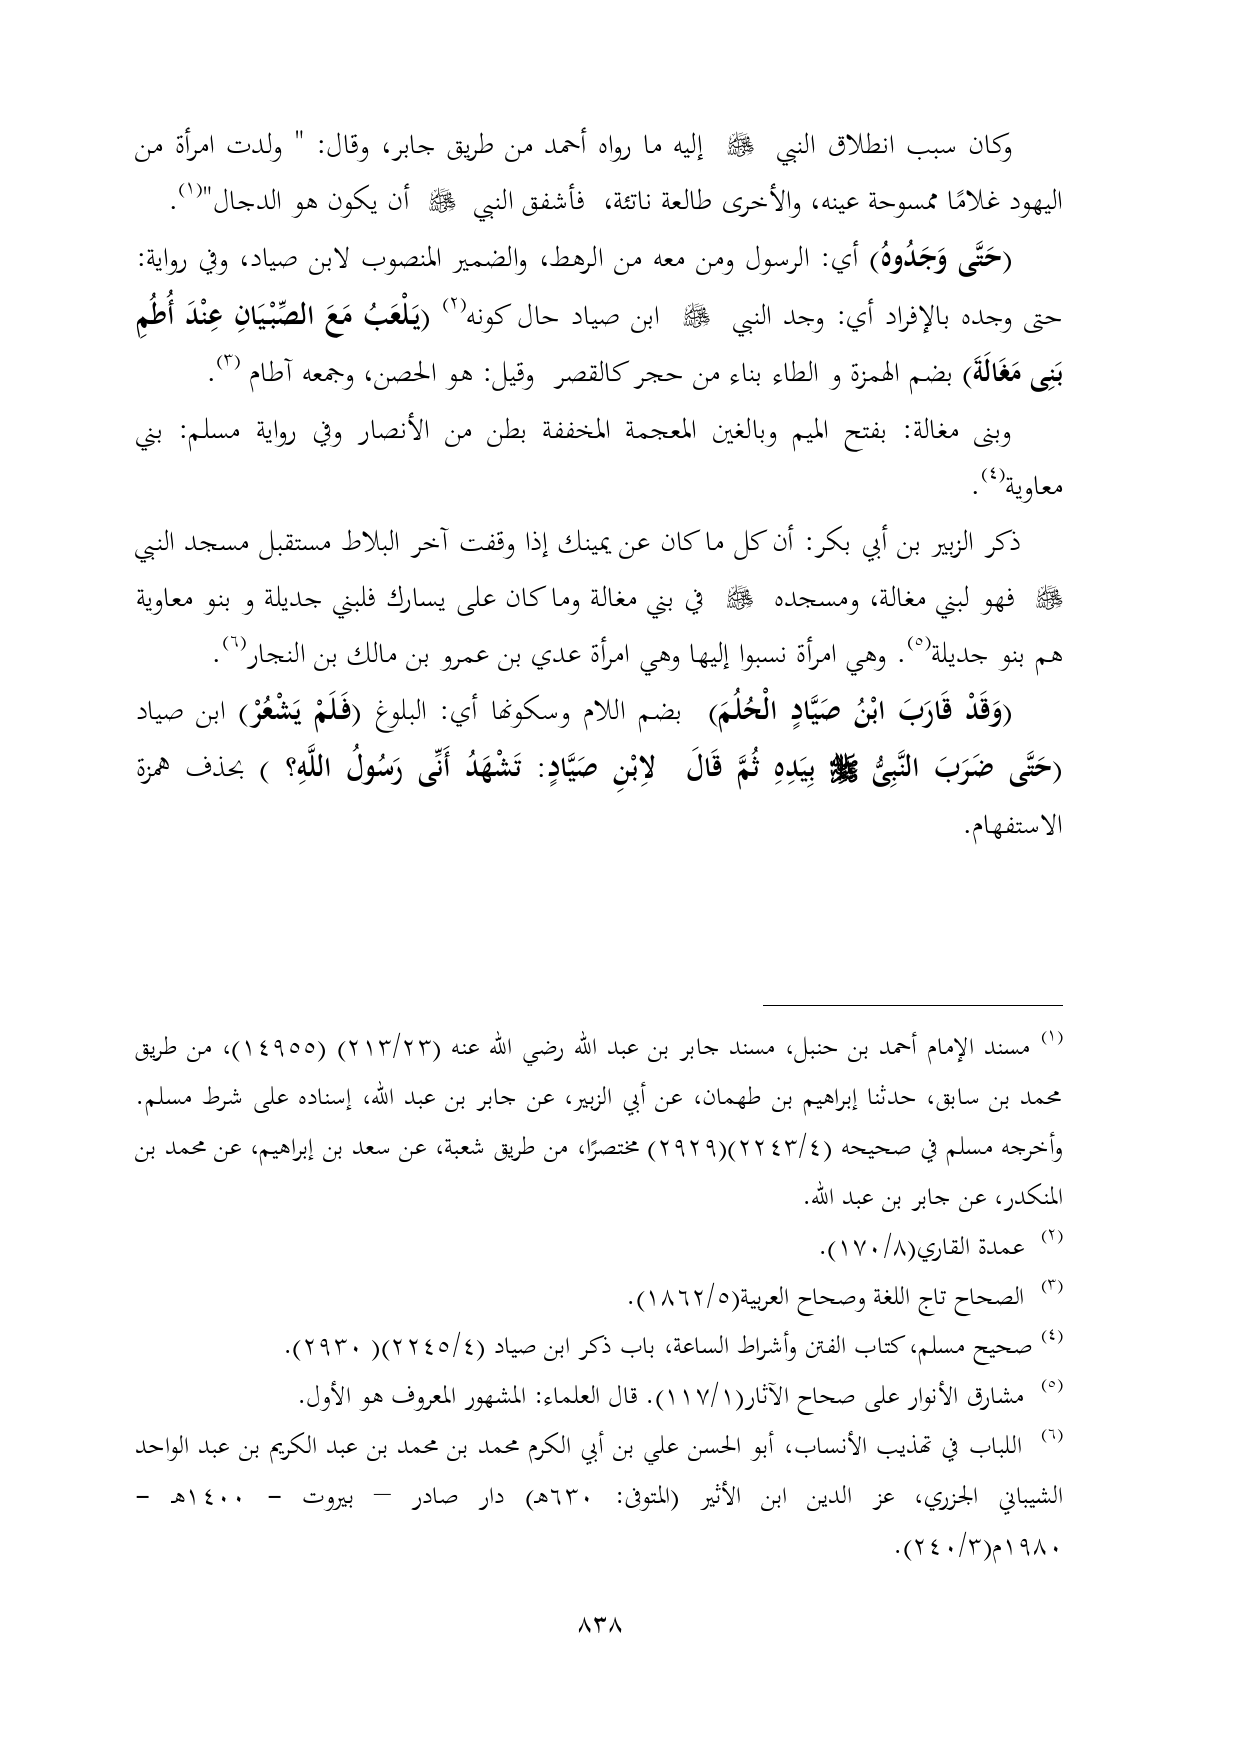 وكان سبب انطلاق النبي ﷺ إليه ما رواه أحمد من طريق جابر، وقال: " ولدت امرأة من
اليهود غلامًا ممسوحة عينه، والأخرى طالعة ناتئة، فأشفق النبي ﷺ أن يكون هو الدجال"(١).
(حَتَّى وَجَدُوهُ) أي: الرسول ومن معه من الرهط، والضمير المنصوب لابن صياد، وفي رواية:
حتى وجده بالإفراد أي: وجد النبي ﷺ ابن صياد حال كونه(٢) (يَلْعَبُ مَعَ الصِّبْيَانِ عِنْدَ أُطُمِ
بَنِى مَغَالَةَ) بضم الهمزة و الطاء بناء من حجر كالقصر وقيل: هو الحصن، وجمعه آطام (٣).
وبنى مغالة: بفتح الميم وبالغين المعجمة المخففة بطن من الأنصار وفي رواية مسلم: بني
معاوية(٤).
ذكر الزبير بن أبي بكر: أن كل ما كان عن يمينك إذا وقفت آخر البلاط مستقبل مسجد النبي
ﷺ فهو لبني مغالة، ومسجده ﷺ في بني مغالة وما كان على يسارك فلبني جديلة و بنو معاوية
هم بنو جديلة(٥). وهي امرأة نسبوا إليها وهي امرأة عدي بن عمرو بن مالك بن النجار(٦).
(وَقَدْ قَارَبَ ابْنُ صَيَّادٍ الْحُلُمَ) بضم اللام وسكونها أي: البلوغ (فَلَمْ يَشْعُرْ) ابن صياد
(حَتَّى ضَرَبَ النَّبِىُّ ﷺ بِيَدِهِ ثُمَّ قَالَ لاِبْنِ صَيَّادٍ: تَشْهَدُ أَنِّى رَسُولُ اللَّهِ؟ ) بحذف همزة
الاستفهام.
(١) مسند الإمام أحمد بن حنبل، مسند جابر بن عبد الله رضي الله عنه (٢١٣/٢٣) (١٤٩٥٥)، من طريق
محمد بن سابق، حدثنا إبراهيم بن طهمان، عن أبي الزبير، عن جابر بن عبد الله، إسناده على شرط مسلم.
وأخرجه مسلم في صحيحه (٢٢٤٣/٤)(٢٩٢٩) مختصرًا، من طريق شعبة، عن سعد بن إبراهيم، عن محمد بن
المنكدر، عن جابر بن عبد الله.
(٢) عمدة القاري(١٧٠/٨).
(٣) الصحاح تاج اللغة وصحاح العربية(١٨٦٢/٥).
(٤) صحيح مسلم، كتاب الفتن وأشراط الساعة، باب ذكر ابن صياد (٢٢٤٥/٤)( ٢٩٣٠).
(٥) مشارق الأنوار على صحاح الآثار(١١٧/١). قال العلماء: المشهور المعروف هو الأول.
(٦) اللباب في تهذيب الأنساب، أبو الحسن علي بن أبي الكرم محمد بن محمد بن عبد الكريم بن عبد الواحد
الشيباني الجزري، عز الدين ابن الأثير (المتوفى: ٦٣٠هـ) دار صادر – بيروت – ١٤٠٠هـ –
١٩٨٠م(٢٤٠/٣).
٨٣٨